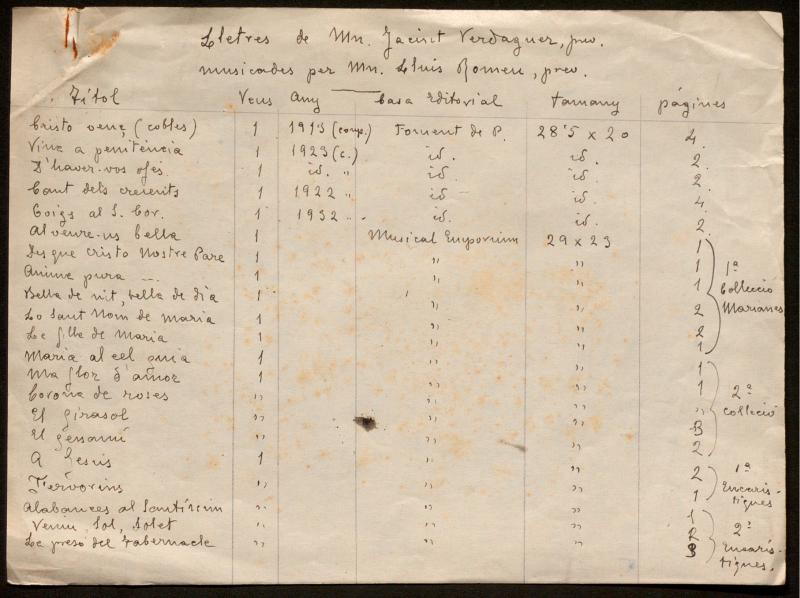 Lletres de Mn. Jacint Verdaguer, prev.
musicades per Mn. Lluis Romeu, prev.
Títol Veus Any Casa Editorial tamany pàgines
Cristo venç (cobles) 1 1913 (comp.) Foment de P. 28'5 x 20 4.
Vine a penitència 1 1923 (c.) id. id. 2.
D'haver-vos ofès 1 id. " id. id. 2.
Cant dels creients 1 1922 " id. id. 4.
Goigs al S. Cor. 1 1932 " id. id. 2.
Al veure-us bella 1 Musical Emporium 29 x 23 1
Des que Cristo Nostre Pare 1 " " 1
Anima pura ... 1 " " 1
Bella de nit, bella de dia 1 " " 2
Lo Sant Nom de Maria 1 " " 2
La filla de Maria 1 " " 1
1ª Col·lecció Marianes
Maria al cel puia 1 " " 1
Ma flor d'amor 1 " " 1
Corona de roses " " " "
El girasol " " " 3
El gesamí " " " 2
2ª col·lecció
A Jesús 1 " " 2
Fervorins " " " 1
1ª Eucarístiques
Alabances al Santíssim " " " 1
Veniu, Sol, Solet " " " 2
Le pres del tabernacle " " " 3
2ª Eucarístiques.